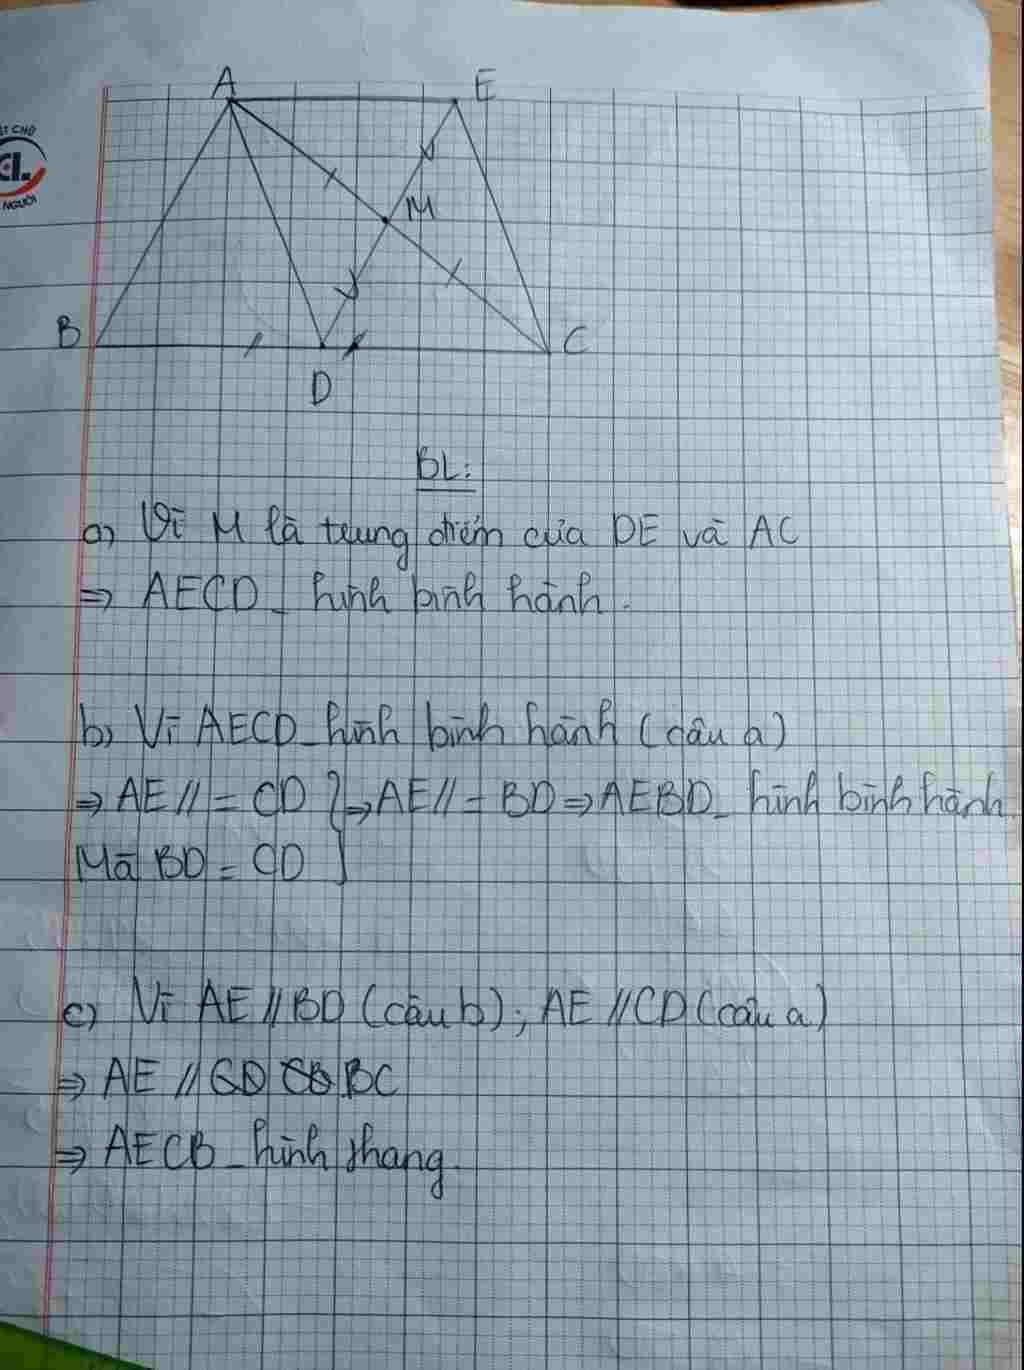 A E
ẾT CHỮ
CL.
NGƯỜI
M
B C
D
BL:
a) Vì M là trung điểm của DE và AC
=> AECD _ hình bình hành.
b) Vì AECD _ hình bình hành (câu a)
=> AE // = CD } => AE // = BD => AEBD _ hình bình hành
Mà BD = CD
c) Vì AE // BD (câu b) ; AE // CD (câu a)
=> AE // BC
=> AECB _ hình thang.